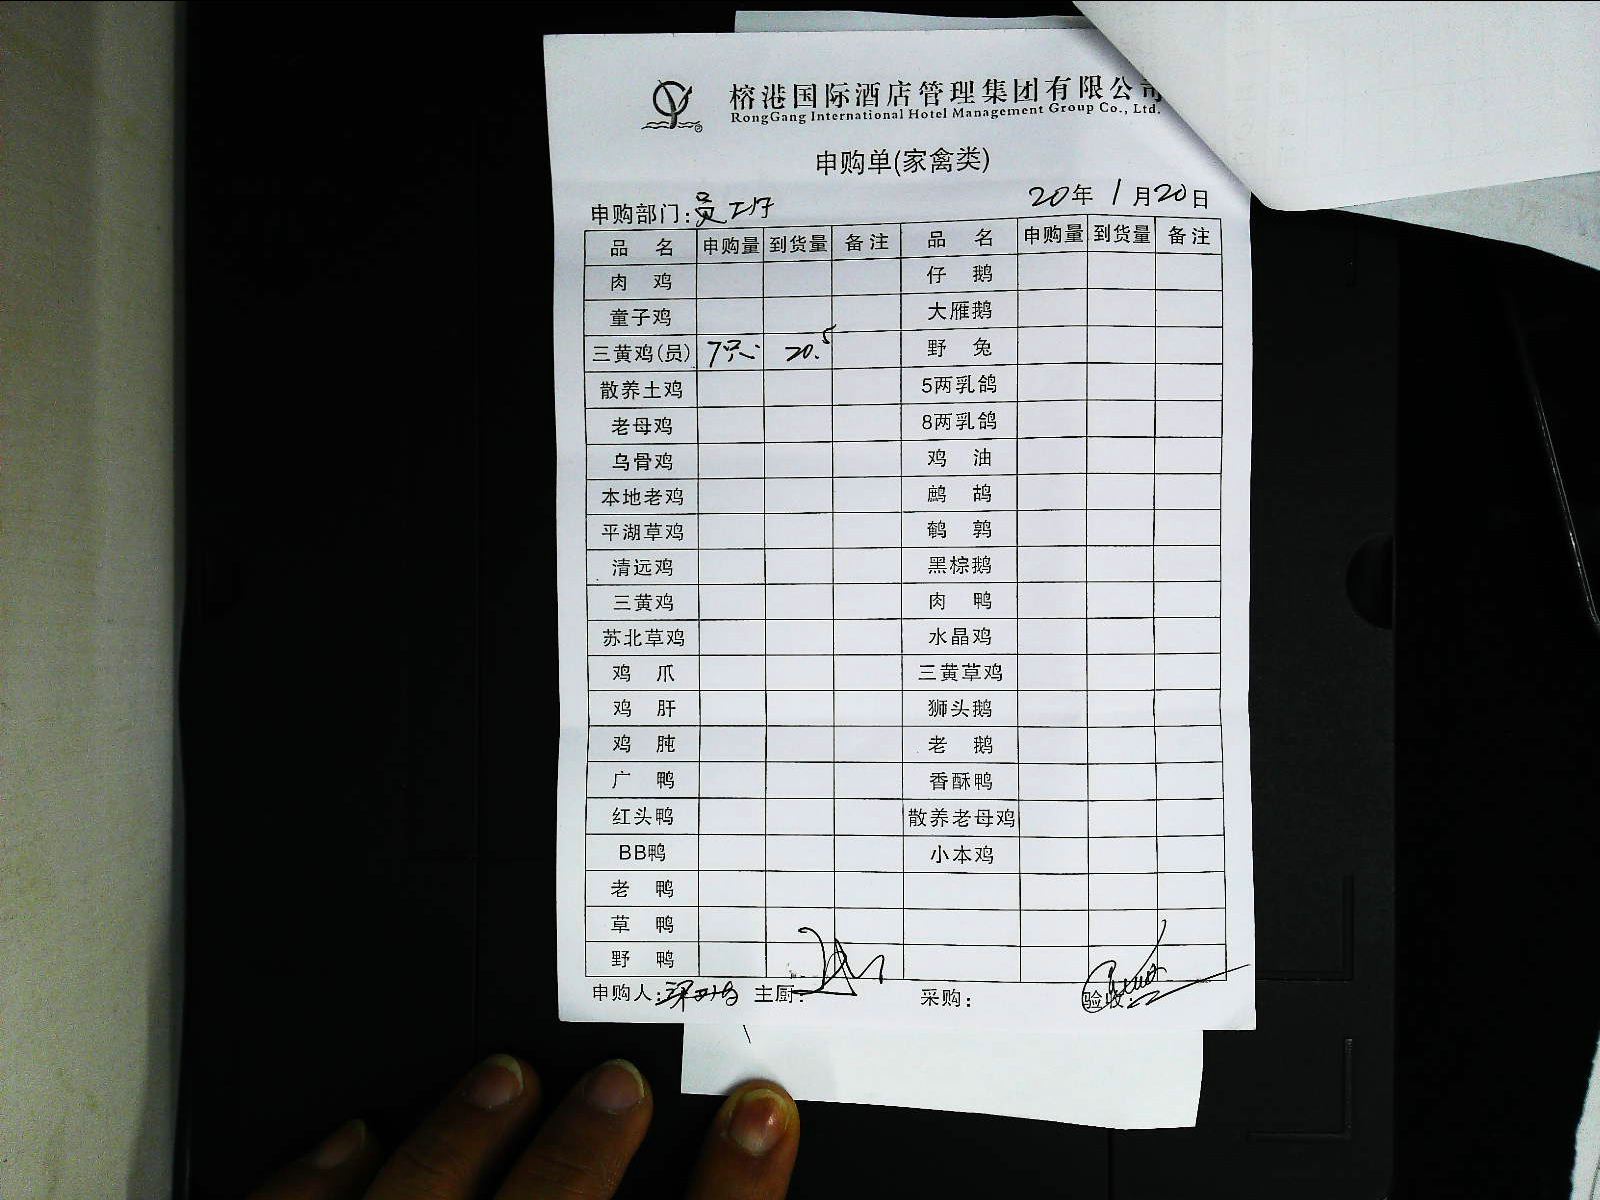 榕港国际酒店管理集团有限公司
RongGang International Hotel Management Group Co., Ltd.
申购单(家禽类)
申购部门:员工厨 20年 1月20日
品 名 申购量 到货量 备注 品 名 申购量 到货量 备注
肉 鸡 仔 鹅
童子鸡 大雁鹅
三黄鸡(员) 7只 20.5 野 兔
散养土鸡 5两乳鸽
老母鸡 8两乳鸽
乌骨鸡 鸡 油
本地老鸡 鹧 鸪
平湖草鸡 鹌 鹑
清远鸡 黑棕鹅
三黄鸡 肉 鸭
苏北草鸡 水晶鸡
鸡 爪 三黄草鸡
鸡 肝 狮头鹅
鸡 肫 老 鹅
广 鸭 香酥鸭
红头鸭 散养老母鸡
BB鸭 小本鸡
老 鸭
草 鸭
野 鸭
申购人: 主厨: 采购: 验收: